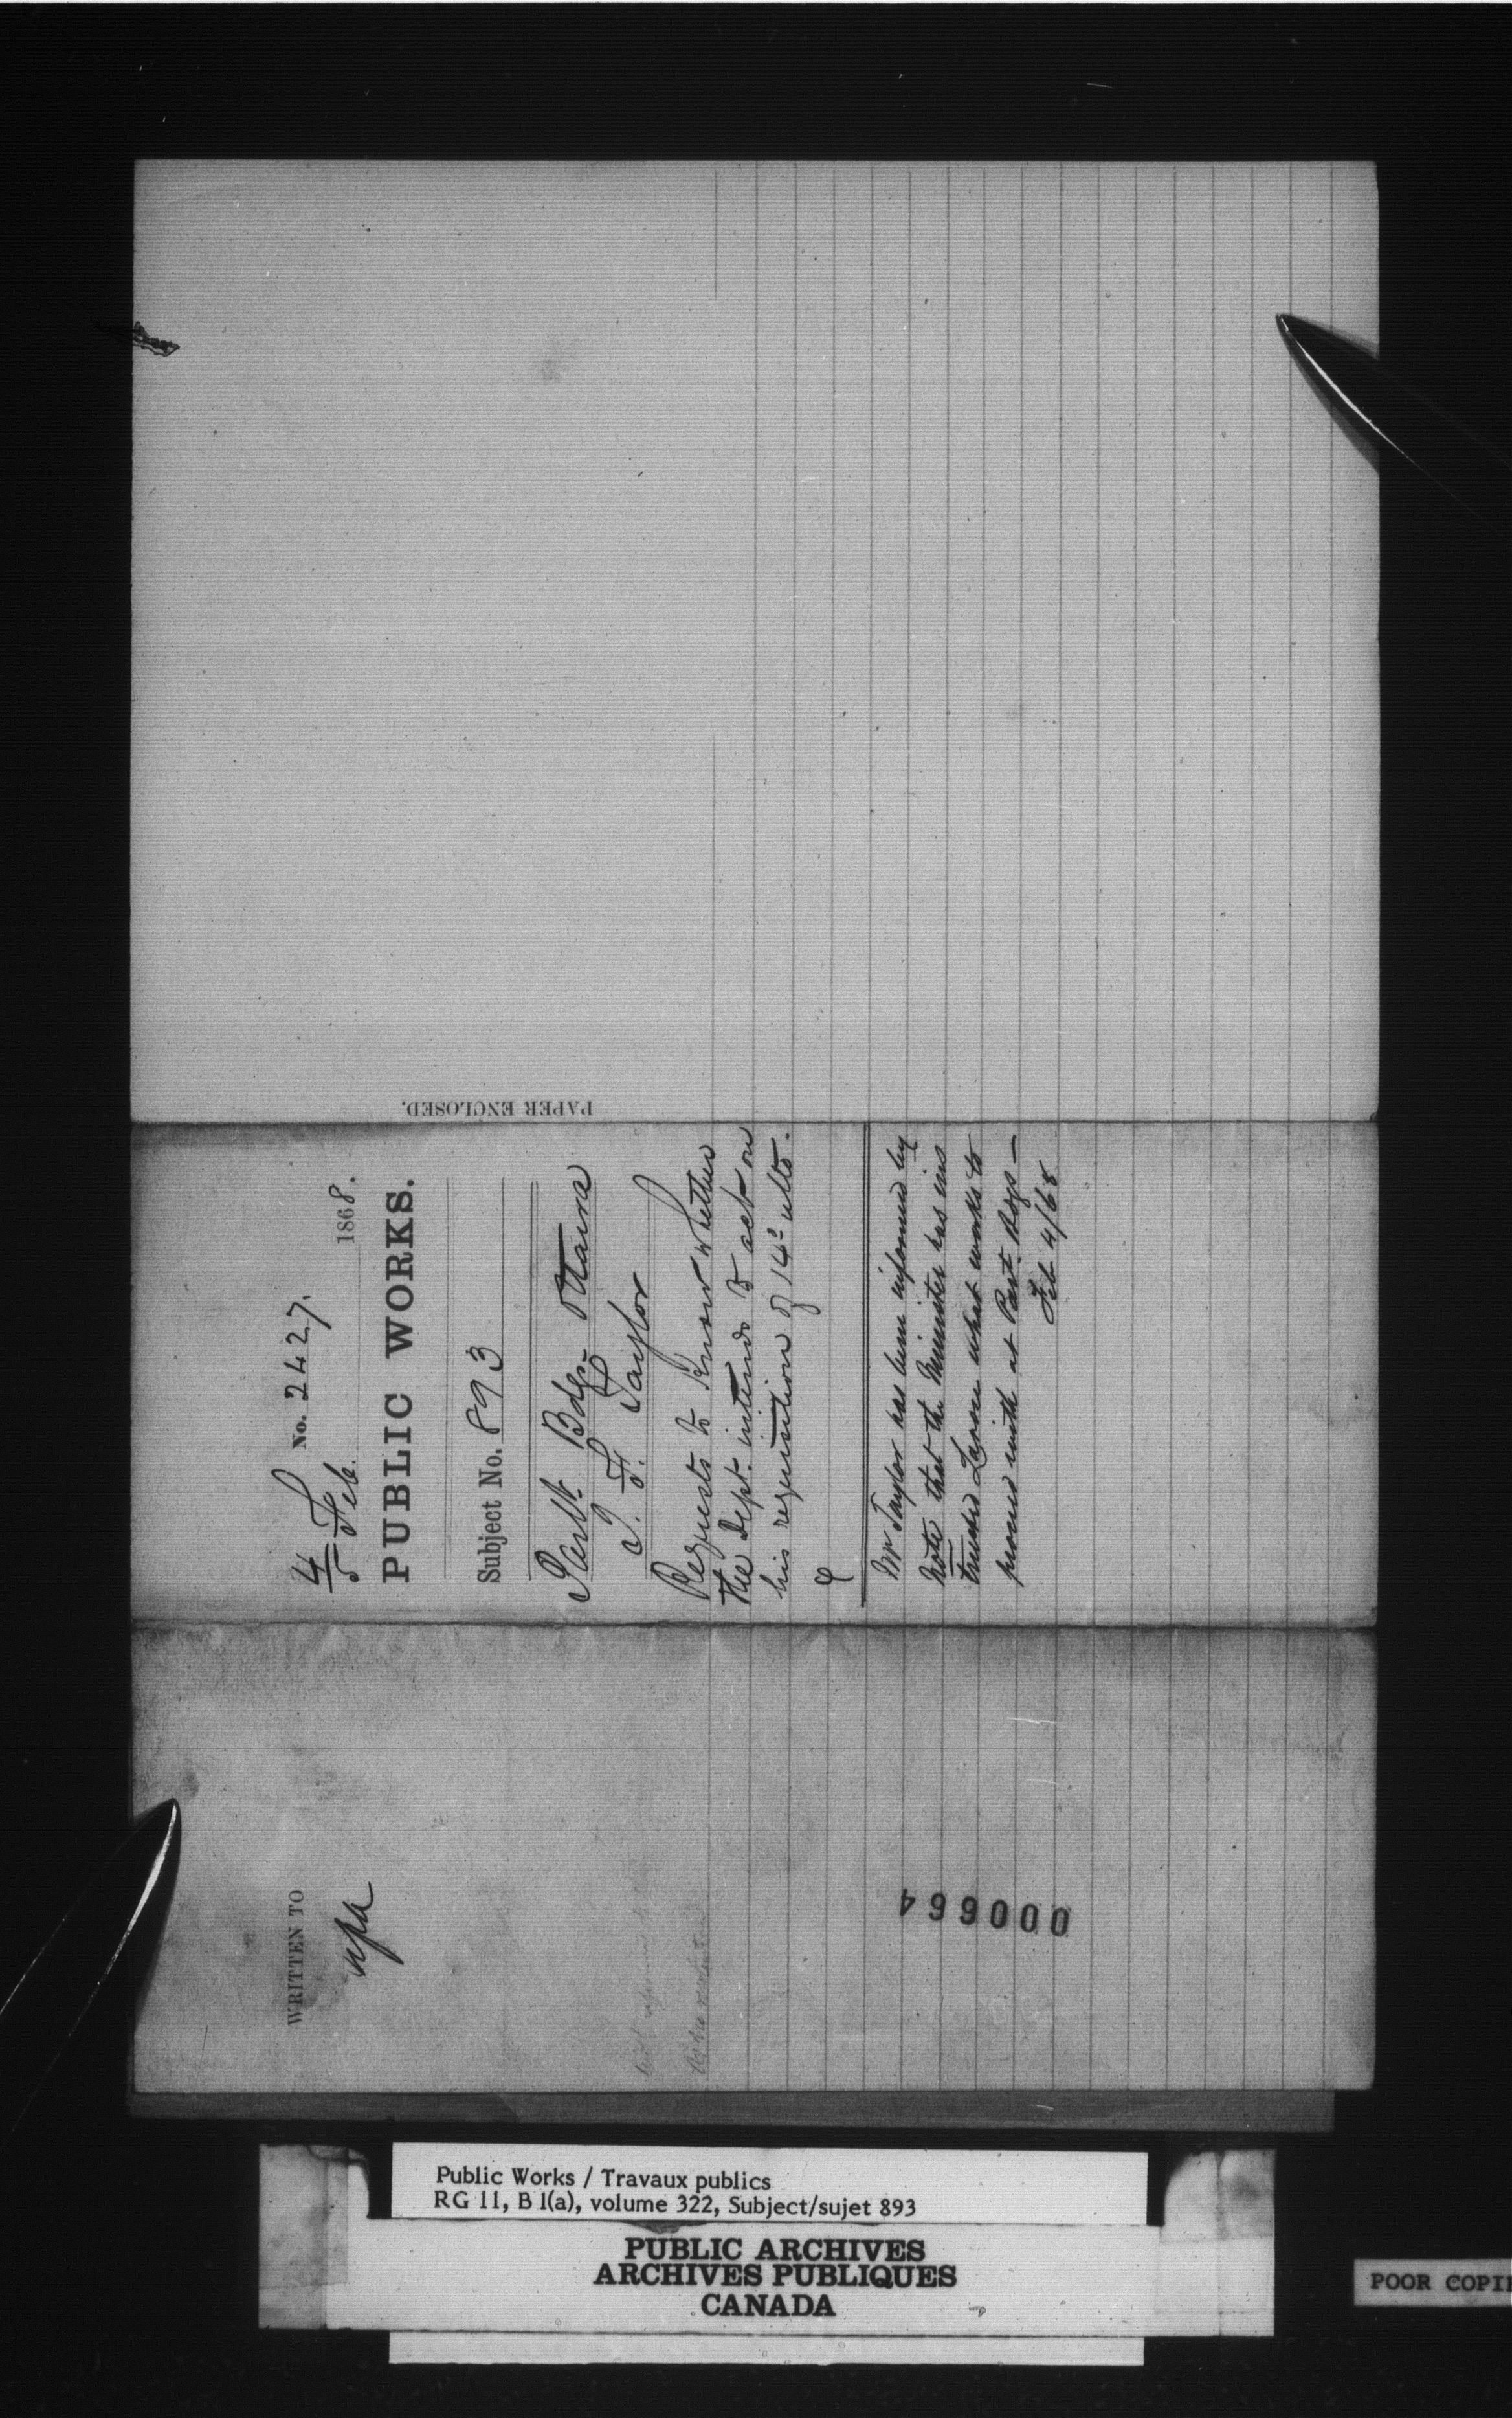 No. 2427.
4/5 Feb. 1868.
PUBLIC WORKS.
Subject No. 893
Parlt. Bdgs- Ottawa
T. F. Taylor
Requests to know whether
the Dept. intends to act on
his requisition of 14th ulto.
Mr Taylor has been informed by
note that the Minister has ins
tructed what works to
proceed with at Part. Bdgs —
Feb 4/68
PAPER ENCLOSED.
WRITTEN TO
000664
Public Works / Travaux publics
RG 11, B 1(a), volume 322, Subject/sujet 893
PUBLIC ARCHIVES
ARCHIVES PUBLIQUES
CANADA
POOR COPI